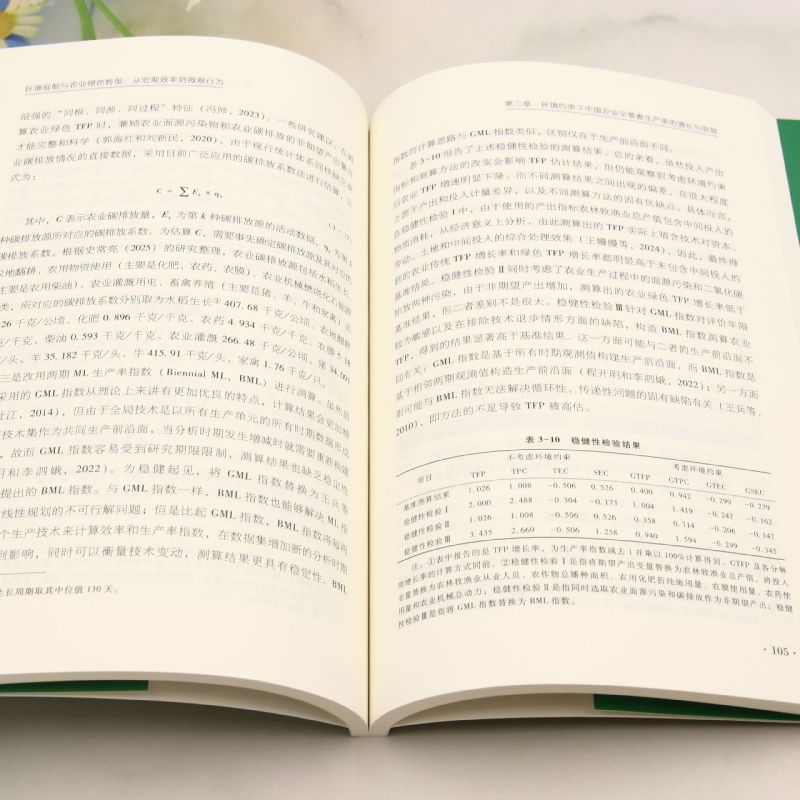 环境规制与农业绿色转型：从宏观效率到微观行为
很强的“同根、同源、同过程”特征（冯帅，2023）。一些研究建议，在测
算农业绿色 TFP 时，兼顾农业面源污染和农业碳排放的非期望产出集合
才能完整和科学（郭海红和刘新民，2020）。由于现行统计体系同样缺乏农
业碳排放情况的直接数据，采用目前广泛应用的碳排放系数法进行估算，公
式为：
C = ∑ Eₖ × ηₖ
其中，C 表示农业碳排放量，Eₖ 为第 k 种碳排放源的活动数据，ηₖ 为第 k
种碳排放源所对应的碳排放系数。为估算 C，需要事先确定碳排放源及其对应的
碳排放系数。根据史常亮（2025）的研究整理，农业碳排放源包括水稻生长、
农地翻耕、农用物资使用（主要是化肥、农药、农膜）、农业机械燃烧化石能源
（主要是农用柴油）、农业灌溉用电、畜禽养殖（主要是猪、羊、牛和家禽）
类，所对应的碳排放系数分别取为水稻生长① 407.68 千克/公顷、农地翻耕
26 千克/公顷、化肥 0.896 千克/千克、农药 4.934 千克/千克、农膜 5.18
千克/千克、柴油 0.593 千克/千克、农业灌溉 266.48 千克/公顷、猪 34.091
千克/头、羊 35.182 千克/头、牛 415.91 千克/头、家禽 1.76 千克/只。
三是改用两期 ML 生产率指数（Biennial ML，BML）进行测算。虽然
采用的 GML 指数从理论上来讲有更加优良的特点，计算结果会更加精
江，2014），但由于全局技术是以所有生产单元的所有时期数据形成
技术集作为共同生产前沿面，当分析时期发生增减时就需要重新构建
，故而 GML 指数容易受到研究期限限制，测算结果也缺乏稳定性
明和李泗娥，2022）。为稳健起见，将 GML 指数替换为王兵等
提出的 BML 指数。与 GML 指数一样，BML 指数也能够解决 ML 指
线性规划的不可行解问题；但是比起 GML 指数，BML 指数将每两
个生产技术来计算效率和生产率指数，在数据集增加新的分析时期
到影响，同时可以衡量技术变动，测算结果更具有稳定性。BML
生长周期取其中位值 130 天。
第三章 环境约束下中国农业全要素生产率的增长与收敛
指数的计算思路与 GML 指数类似，区别仅在于生产前沿面不同。
表 3-10 报告了上述稳健性检验的测算结果。总的来看，虽然投入产出
指标和测算方法的改变会影响 TFP 估计结果，但仍能观察到考虑环境约束
后农业 TFP 增速明显下降。而不同测算结果之间出现的偏差，在很大程度
上源于产出和投入计量差异，以及不同测算方法的固有优缺点。具体而言，
稳健性检验Ⅰ中，由于使用的产出指标农林牧渔业总产值包含中间投入的
物质消耗，从经济意义上分析，由此测算出的 TFP 实际上暗含技术对资本、
劳动、土地和中间投入的综合处理效果（王嫚嫚等，2024），因此，最终得
到的农业传统 TFP 增长率和绿色 TFP 增长率都明显高于未包含中间投入的
基准结果。稳健性检验Ⅱ同时考虑了农业生产过程中的面源污染和二氧化碳
排放两种污染，由于非期望产出增加，测算出的农业绿色 TFP 增长率低于
基准结果，但二者差别不是很大。稳健性检验Ⅲ针对 GML 指数对评价年限
较为敏感以及在排除技术退步情形方面的缺陷，构造 BML 指数测算农业
TFP，得到的结果显著高于基准结果。这一方面可能与二者的生产前沿面不
同有关：GML 指数是基于所有时期观测值构建生产前沿面，而 BML 指数是
基于相邻两期观测值构造生产前沿面（程开明和李泗娥，2022）；另一方面
则可能与 BML 指数无法解决循环性、传递性问题的固有缺陷有关（王兵等，
2010），即方法的不足导致 TFP 被高估。
表 3-10 稳健性检验结果
项目 不考虑环境约束 考虑环境约束
TFP TPC TEC SEC GTFP GTPC GTEC GSEC
基准测算结果 1.026 1.008 -0.506 0.526 0.400 0.942 -0.299 -0.239
稳健性检验Ⅰ 2.000 2.488 -0.304 -0.173 1.004 1.419 -0.247 -0.162
稳健性检验Ⅱ 1.026 1.008 -0.506 0.526 0.358 0.714 -0.206 -0.147
稳健性检验Ⅲ 3.435 2.669 -0.506 1.258 0.940 1.594 -0.299 -0.345
注：①表中报告的是 TFP 增长率，为生产率指数减去 1 并乘以 100%计算得到，GTFP 及各分解
项增长率的计算方式同前。②稳健性检验Ⅰ是指将期望产出变量替换为农林牧渔业总产值，将投入
变量替换为农林牧渔业从业人员、农作物总播种面积、农用化肥折纯施用量、农膜使用量、农药使
用量和农业机械总动力；稳健性检验Ⅱ是指同时选取农业面源污染和碳排放作为非期望产出；稳健
性检验Ⅲ是指将 GML 指数替换为 BML 指数。
·105·